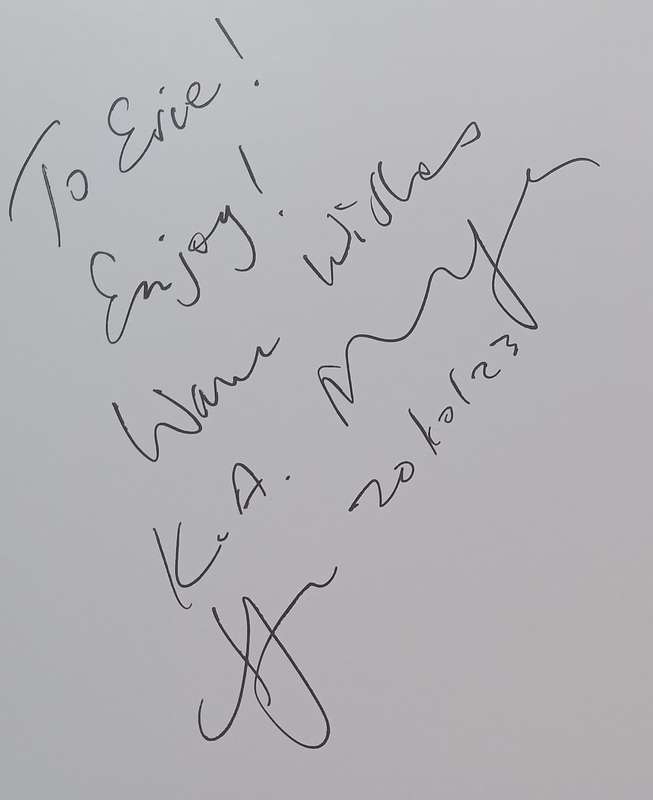 To Erice!
Enjoy!
Warm Wishes
K.A.
20/10/23